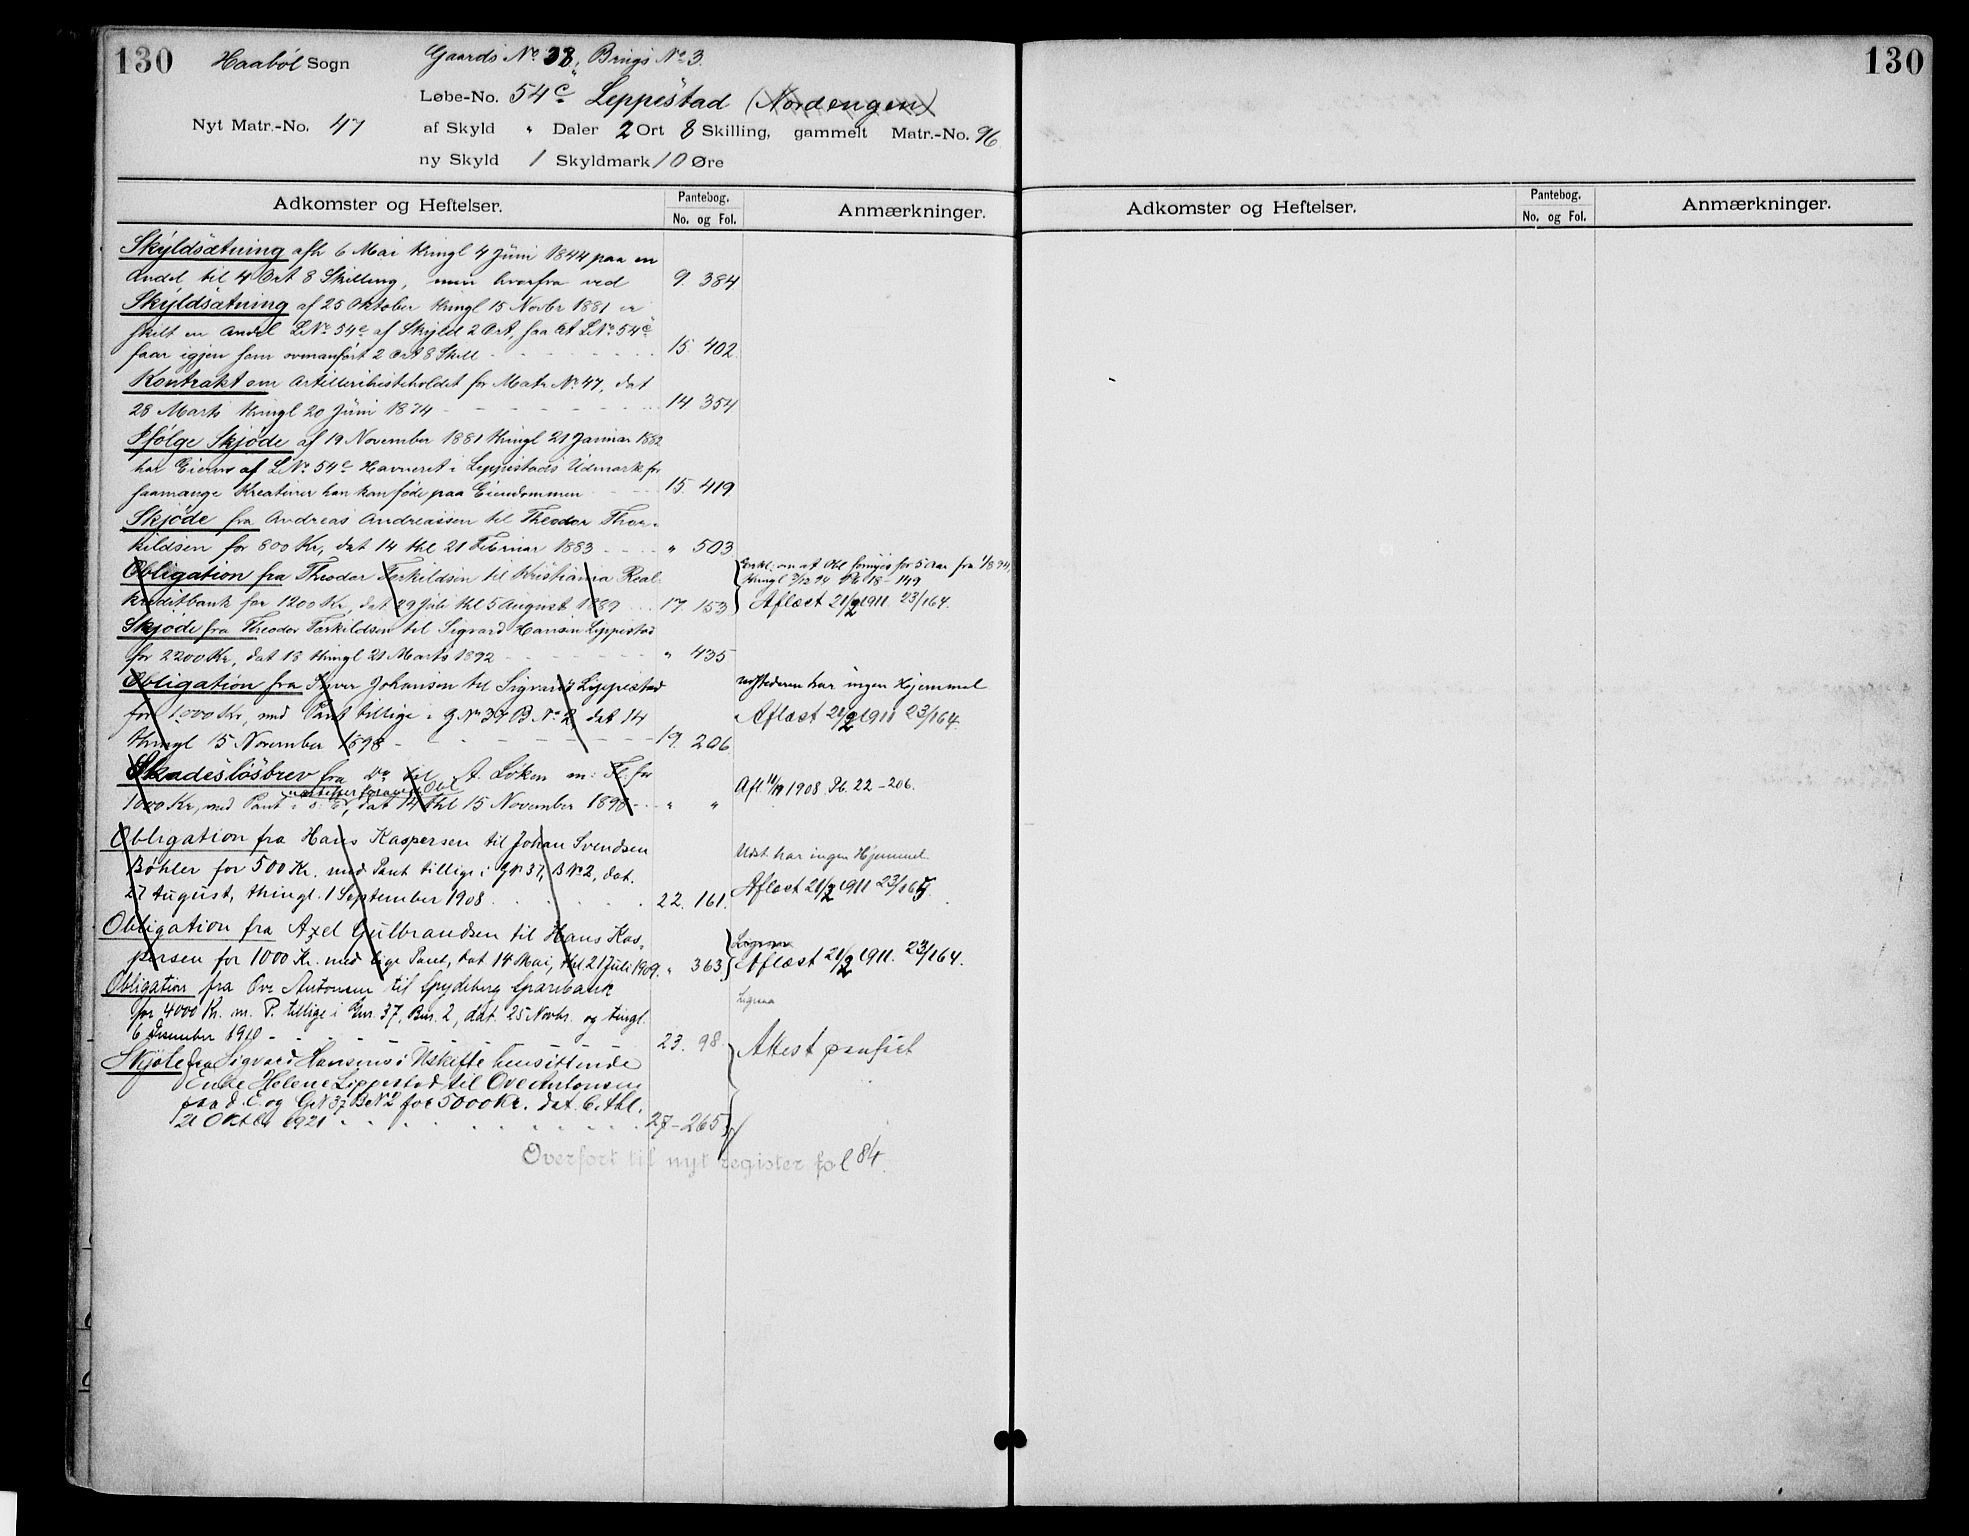 130
Haabøl Sogn
Gaards No 38, Brugs No 3.
Løbe-No. 54c Leppestad (Nordengen)
Nyt Matr.-No. 47
af Skyld " Daler 2 Ort 8 Skilling, gammelt Matr.-No. 96
ny Skyld 1 Skyldmark 10 Øre
Adkomster og Heftelser. Pantebog. No. og Fol. Anmærkninger.
Skyldsætning afh 6 Mai thingl 4 Juni 1844 paa en
Andel til 4 Ort 8 Skilling, men hvorfra ved 9. 384
Skyldsætning af 25 Oktober thingl 15 Novbr 1881 er
skilt en Andel LNo 54e af Skyld 2 Ort, saa at LNo 54c
faar igjen som ovenanført 2 Ort 8 Skill 15. 402
Kontrakt om Artillerihesteholdet for Matr No. 47, dat
28 Marts thingl 20 Juni 1874 14 354
Ifølge Skjøde af 19 November 1881 thingl 21 Januar 1882
har Eieren af LNo 54c Havneret i Leppestads Udmark for
saamange Kreaturer han kan føde paa Eiendommen 15. 419
Skjøde fra Andreas Andreassen til Theodor Thor-
kildsen for 800 Kr, dat 14 thl 21 Februar 1883 " 503
Obligation fra Theodor Torkildsen til Kristiania Real-
kreditbank for 1200 Kr, dat 29 Juli thl 5 August 1889 17. 153
Erkl. om at Obl fornyes for 5 Aar fra 1/8 94,
thingl 7/12 94 Pb 18 - 149
Aflæst 21/2 1911 23/164.
Skjøde fra Theodor Torkildsen til Sigvard Hansen Leppestad
for 2200 Kr, dat 18 thingl 21 Marts 1892 " 435
Obligation fra Syver Johansen til Sigvard Leppestad
for 1.000 Kr, med Pant tillige i GNo 37 BNo 2, dat 14
thingl 15 November 1898 19. 206.
Udstederen har ingen Hjemmel
Aflæst 21/2 1911 23/164.
Skadesløsbrev fra Do til A. Løken m: Fl. for
næstefter foranst. Obl
1000 Kr, med Pant i s. E., dat 14 thl 15 November 1898 " "
Afl 11/9 1908 Pb. 22 - 206.
Obligation fra Hans Kaspersen til Johan Svendsen
Bøhler for 500 Kr. med Pant tillige i GN 37, BN 2, dat.
27 August, thingl. 1 September 1908 22. 161.
Udst har ingen Hjemmel.
Aflæst 21/2 1911 23/165.
Obligation fra Axel Gulbrandsen til Hans Kas-
persen for 1000 Kr. med lige Pant, dat 14 Mai, thl 21 Juli 1909. " 363
Ligesaa
Aflæst 21/2 1911. 23/164.
Obligation fra Ove Antonsen til Spydeberg Sparebank
for 4000 Kr. m. P. tillige i Gnr. 37, Bnr. 2, dat. 25 Novbr. og tingl.
6 Desember 1910 23. 98.
Ligesaa
Skjøte fra Sigvard Hansens i Uskifte hensittende
Enke Helene Lippestad til Ove Antonsen
paa d. E. og GN 37 BN 2 for 5000 Kr. dat. 6. thl.
21 Oktbr 1921 27 - 265
Attest paaført
Overført til nyt register fol 84.
130
Adkomster og Heftelser. Pantebog. No. og Fol. Anmærkninger.